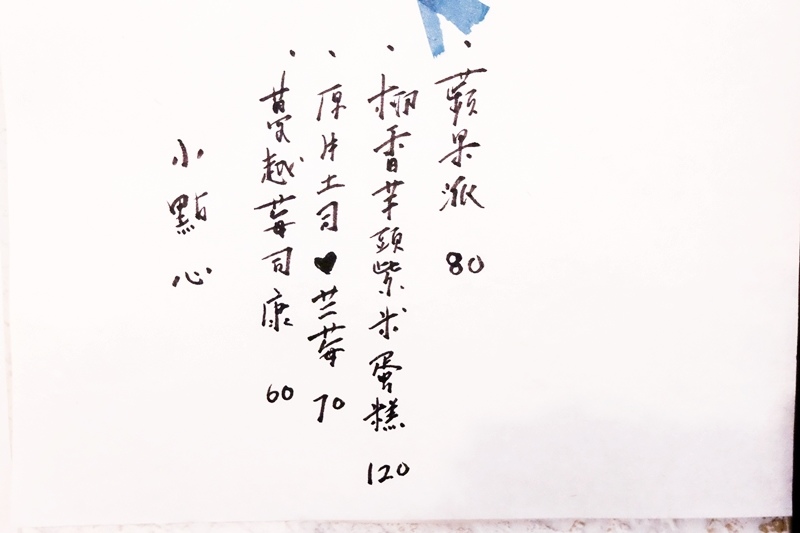 小點心
・蔓越莓司康 60
・厚片土司♥兰莓 70
・椰香芋頭紫米蛋糕 120
・蘋果派 80